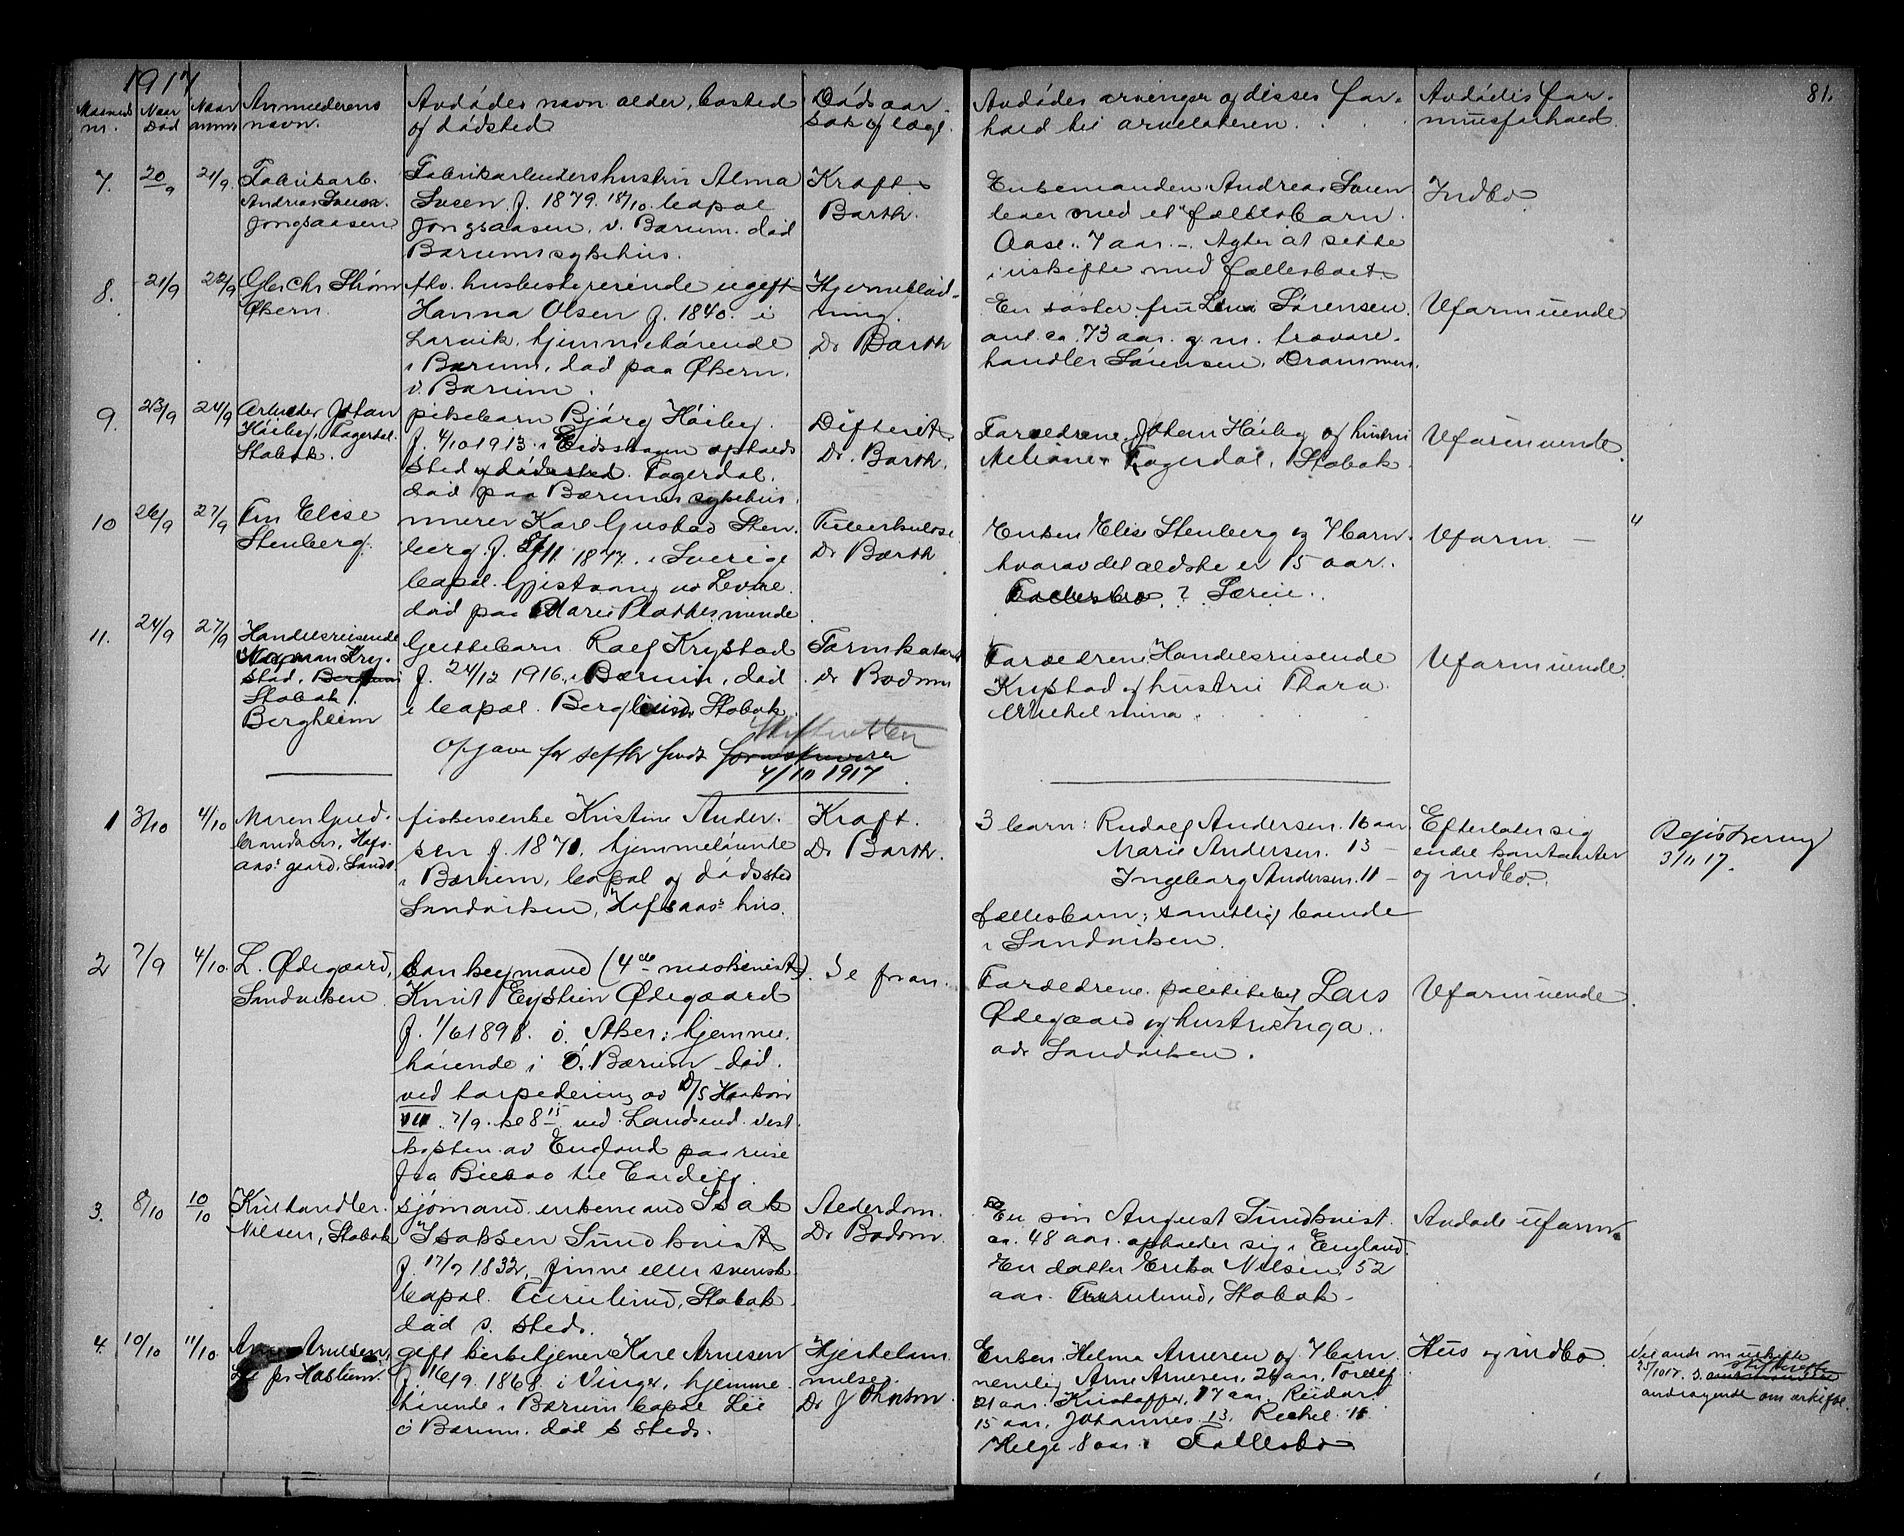 1917
81.
Maaneds nr.
Naar Död
Naar anm
Anmelderens navn.
Avdödes navn alder, bosted
og dödsted
Döds aar-
sak og læge
Avdödes arvinger og disses for-
hold til arvelateren.
Avdödes for-
muesforhold
7.
20/9
21/9.
Fabrikarb.
Andreas Svensen
Jongsaasen
Fabrikarbeidershustru Alma
Svesen f. 1879. 18/10. bopæl
Jongsaasen, v. Bærum. död
Bærums sykehus.
Kræft
Barth.
Enkemanden Andreas Svensen
lever med et fællesbarn
Aase. 7 aar. - Agter at sitte
i uskifte med fællesboet
Indbo
8.
21/9
22/9
Ole Chr Ström
Økern.
fhv. husbestyrerinde ugift
Hanna Olsen f. 1840. i
Larvik, hjemmehörende
i Bærum, död paa Økern.
v. Bærum.
Hjerneblöd-
ning.
Dr Barth
En söster fru Lena Sörensen
ant. ca. 73 aar. g. m. trævare-
handler Sörensen, Drammen.
Uformuende
9.
23/9
24/9
Arbeider Johan
Höiby, Fagerdal.
Stabæk.
pikebarn Bjórg Höiby.
f. 4/10 1913 i Eidsskogen opholds
sted og dödssted Fagerdal.
död paa Bærums sykehus.
Difterit
Dr. Barth.
Forældrene Johan Höiby og hustru
Meliane Fagerdal, Stabæk
Uformuende.
10
26/9
27/9
Fru Elise
Stenberg.
murer Karl Gustav Sten-
berg. f. 5/11. 1877. i Sverige
bopæl. Gjistvang
död paa Marie Plathes minde
Tuberkulose
Dr Barth
Enken Elise Stenberg og 7 barn.
hvorav det ældste er 15 aar.
Fællesbo ? Særeie.
Uform. -
4
11.
24/9
27/9
Handelsreisende
Kry-
stad,
Stabæk
Bergheim
Guttebarn Rolf Krystad
f. 24/12 1916, i Bærum, död
i bopæl. Bergheim Stabæk.
Tarmkatarr
Dr Bodom
Forældrene Handelsreisende
Krystad og hustru Thora
Michelmina.
Uformuende.
Opgave for septbr sendt Skifteretten
4/10 1917
1
3/10
4/10
Maren Gud-
brandsen, Hofs-
aas gaard, Sandv.
fiskerenke Kristine Ander-
sen f. 1870. hjemmehörende
i Bærum, bopæl og dödssted
Sandviken, Hofsaas hus.
Kræft.
Dr Barth.
3 barn: Rudolf Andersen. 16 aar
Marie Andersen. 13 -
Ingeborg Andersen. 11 -
fællesbarn; samtlig boende
i Sandviken.
Efterlater sig
endel kontanter
og indbo.
Registrering
3/11 17.
2
7/9
4/10.
L. Ødegaard,
Sandviken.
(4de maskinist).
Knut Eystein Ødegaard
f. 1/6 1898. i Aker: hjemme-
hörende i Ö. Bærum död
ved torpedering av D/S Haakon
VII. 7/9. kl 8 15 ved Landsend vest
kysten av England paa reise
fra Bilbao til Cardiff.
Se foran.
Forældrene politibetj Lars
Ødegaard og hustru Inga.
adr Sandviken.
Uformuende.
3.
8/10
10/10
Kulhandler
Nilsen, Stabæk
Sjömand enkemand Isak
Isaksen Sundkvist
f. 17/7 1832, finne eller svensk
bopæl Furulund, Stabæk.
död s. steds.
Alderdom.
Dr Bodom.
En sön August Sundkvist.
ca. 48 aar. opholder sig i England.
En datter Erika Nilsen, 52
aar. Furulund, Stabæk.
Avdöde uform.
4.
10/10
11/10.
Arnesen
gift kirketjener Karl Arnesen
f. 16/9. 1868 i Vinger, hjemme-
hörende i Bærum bopæl Lie
i Bærum. död s steds.
Hjertelam-
melse.
Dr Johnson
Enken Helma Arnesen og 7 barn
nemlig Arne Arnesen, 26 aar. Torleif
21 aar. Kristoffer, 17 aar Reidar
15 aar, Johannes 13, Rakel 11
Helge 8 aar. Fællesbo
Hus og indbo.
Vil anh om uskifte
25/10 17. skifteretten
andragende om uskifte.